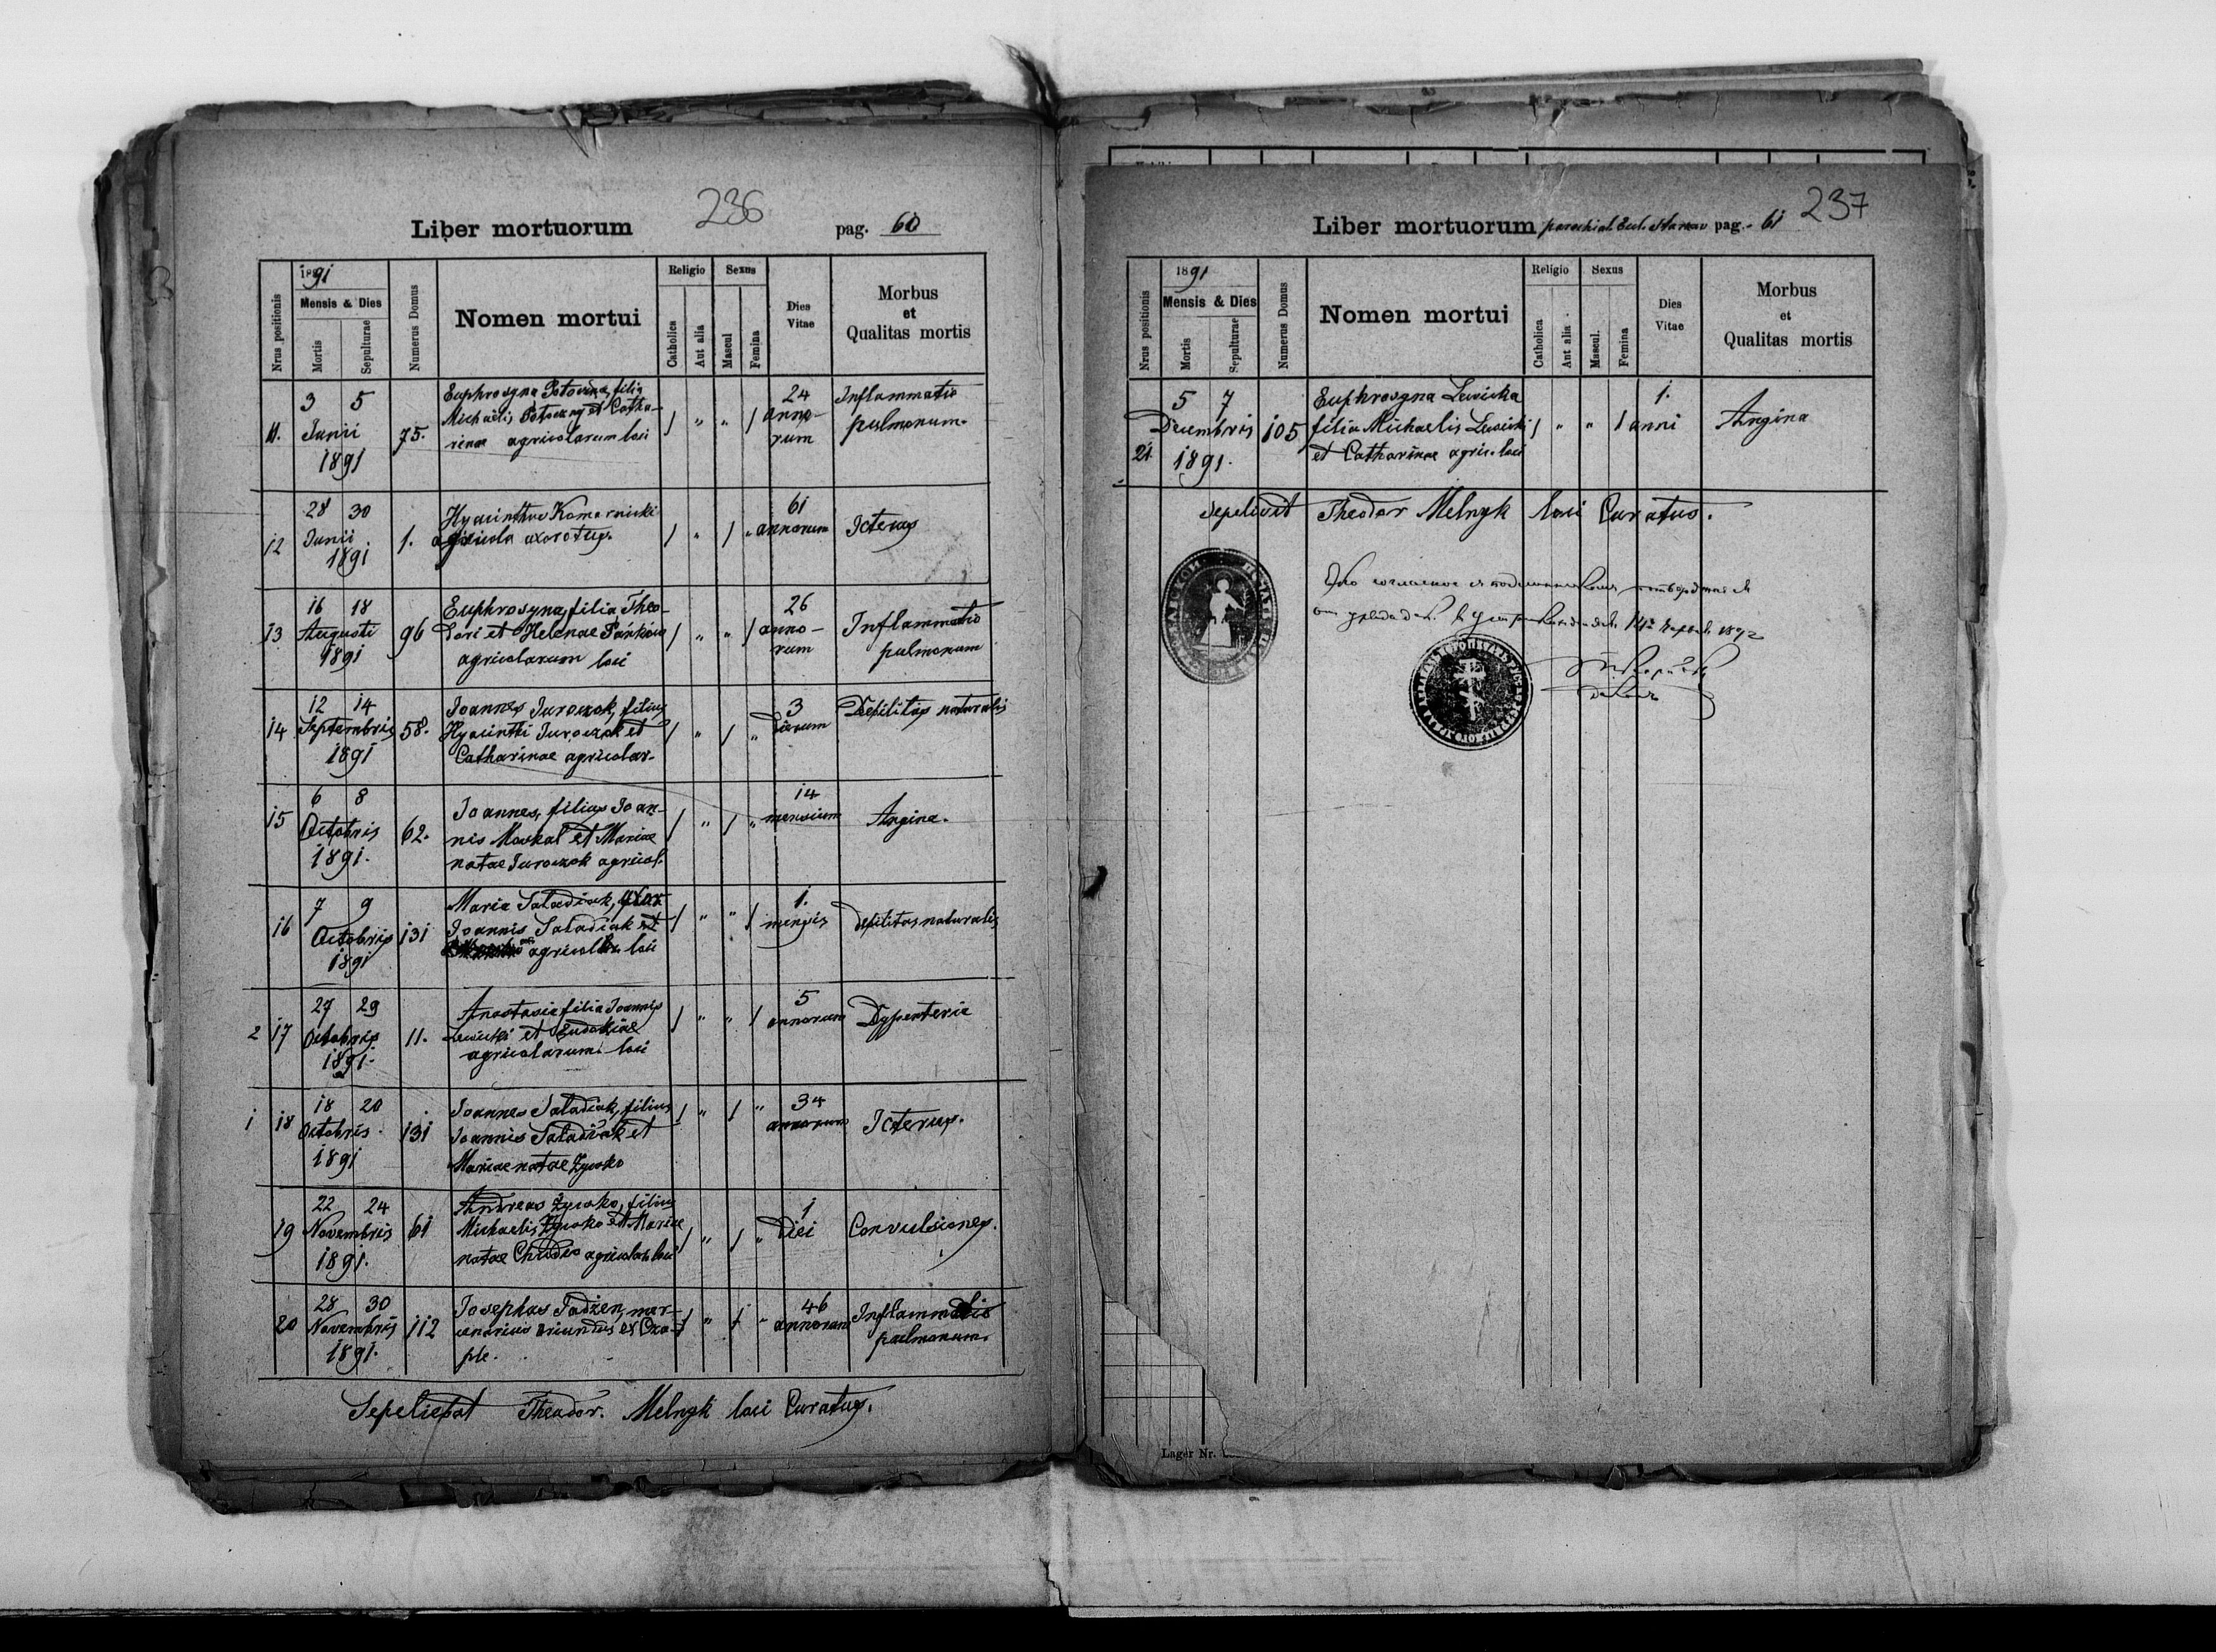 236
Liber mortuorum pag. 60
1891
Nrus positionis
Mensis & Dies
Mortis
Sepulturae
Numerus Domus
Nomen mortui
Religio
Catholica
Aut alia
Sexus
Mascul
Femina
Dies
Vitae
Morbus
et
Qualitas mortis
11. 3 5
Junii
1891
75.
Euphrosyna Potoczna, filia
Michaelis Potoczny et Catha-
rinae agricolarum loci
24
anno-
rum
Inflammatio
pulmonum.
12 28 30
Junii
1891
1.
Hyacinthus Komarnicki
agricola uxoratus.
61
annorum
Icterus
13 16 18
Augusti
1891
96
Euphrosyna, filia Theo-
dori et Helenae
agricolarum loci
26
anno-
rum
Inflammatio
pulmonum
14 12 14
Septembris
1891
58.
Joannes Juroczok, filius
Hyacinthi Juroczok et
Catharinae agricolar.
3
dierum
Debilitas naturalis
15 6 8
Octobris
1891.
62.
Joannes, filius Joan-
nis Moskal et Mariae
natae Juroczok agricol.
14
mensium
Angina.
16 7 9
Octobris
1891
131
Maria Satadiak, uxor
Joannis Satadiak et
agricolar. loci
1.
mensis
debilitas naturalis
2 17 27 29
Octobris
1891.
11.
Anastasia filia Joannis
Lewicki et Eudokiae
agricolarum loci
5
annorum
Dysenteria
1 18 18 20
Octobris
1891
131
Joannes Satadiak, filius
Joannis Satadiak et
Mariae natae Zywko
34
annorum
Icterus.
19 22 24
Novembris
1891.
61
Andreas Zywko, filius
Michaelis Zywko et Mariae
natae Chudio agricolar. loci
1
diei
Convulsiones.
20 28 30
Novembris
1891.
112
Josephus Tadzen, mer-
cenarius oriundus ex Cza-
ple.
46
annorum
Inflammatio
pulmonum.
Sepeliebat Theodor. Melnyk loci Curatus.
237
Liber mortuorum parochial. Eccl. pag. 61
1891
Nrus positionis
Mensis & Dies
Mortis
Sepulturae
Numerus Domus
Nomen mortui
Religio
Catholica
Aut alia
Sexus
Mascul.
Femina
Dies
Vitae
Morbus
et
Qualitas mortis
21 5 7
Decembris
1891.
105
Euphrosyna Lewicka
filia Michaelis Lewicki
et Catharinae agric. loci
1.
anni
Angina
Sepelivit Theodor Melnyk loci Curatus.
1892
Lager Nr.